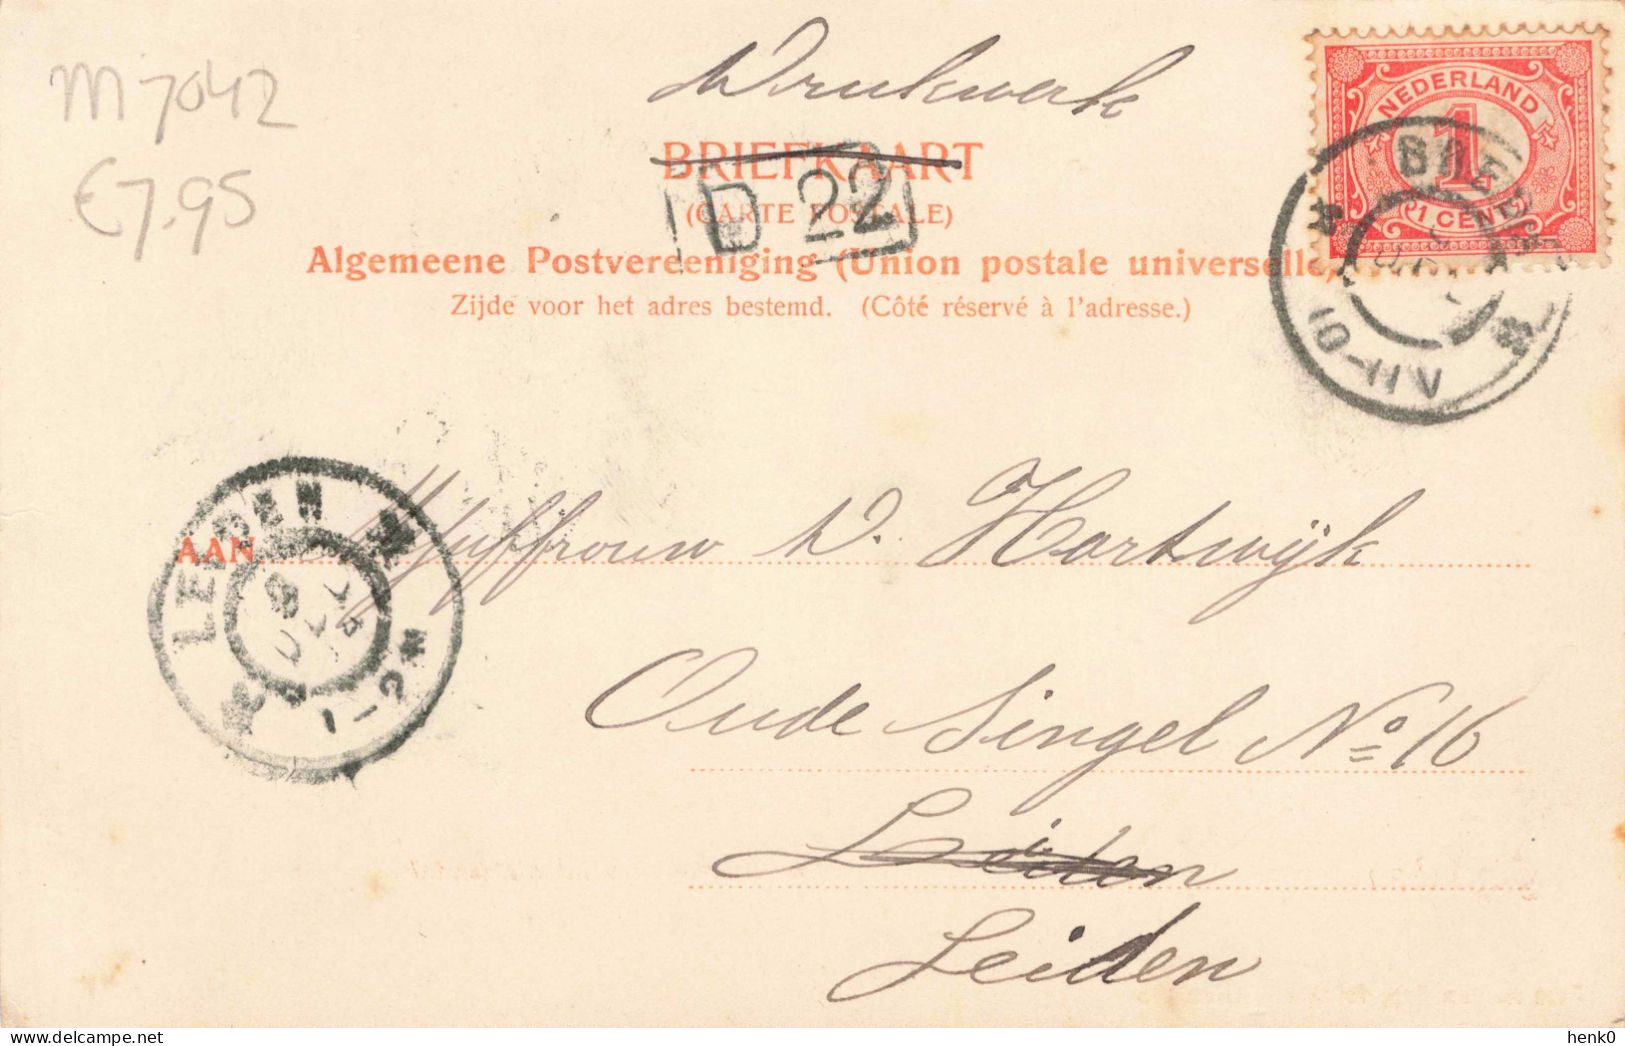 M 7042
€7.95
Drukwerk
NEDERLAND
1
1 CENT
BRIEFKAART
(CARTE POSTALE)
D 22
Algemeene Postvereeniging (Union postale universelle)
Zijde voor het adres bestemd. (Côté réservé à l'adresse.)
10-11V
LEIDEN
8
1-2N
AAN Mejuffrouw W. Hartwijk
Oude Singel No 16
Leiden
Leiden
henk0